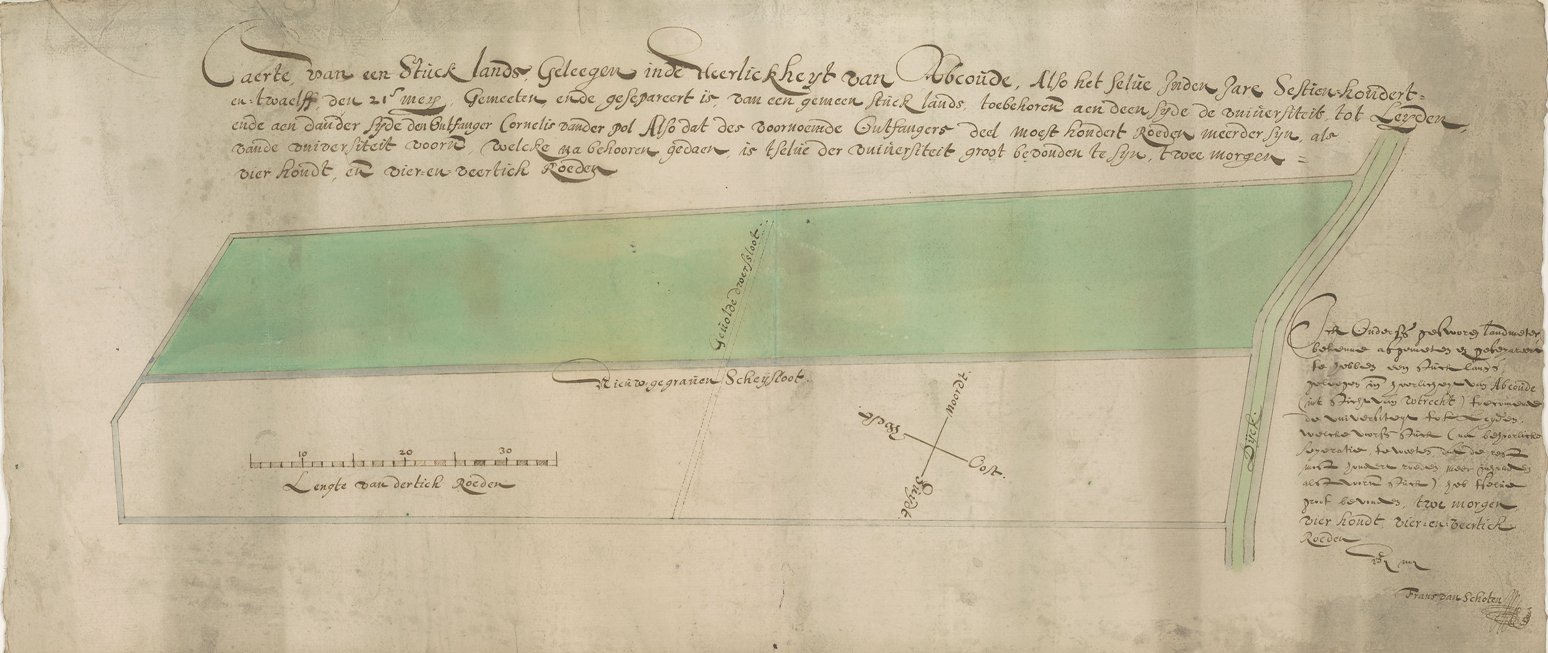 Caerte, van een Stuck lands, Geleegen inde Heerlickheyt van Abcoude, Also het selve Inden Jare Sestien-hondert-
en-twaelff, den 21e mey, Gemeeten ende gesepareert is, van een gemeen stuck lands, toebehoren aen deen syde de vniversiteit tot Leyden,
ende aen dander syde den Ontfanger Cornelis vander pol Also dat des voornoemde Ontfangers deel moest hondert Roeden meerder syn, als
vande vniversiteit voorn, welcke na behooren gedaen, is tselve der vniversiteit groot bevonden te syn, twee morgen
vier hondt, en vier-en-veertich Roeden
Gevolde dweersloot
Nieuw gegraven Scheysloot
noordt
West
Oost
Zuydt
10 20 30
Lengte van dertich Roeden
Dyck
Ick Onderss gesworen landmeter
bekenne afgemeten en gesepareert
te hebben een stuck lants
gelegen in heerlicheyt van Abcoude
int Sticht van Wtrecht) toecomende
de universiteyt tot Leyden,
welcke voors stuck (na behoorlicke
separatie, te weten dat de rest
most hondert roeden meer
als voorn stuck) heb tselve
groot bevonden, twe morgen
vier hondt, vier-en-veertich
Roeden
By my
Frans van Schoten